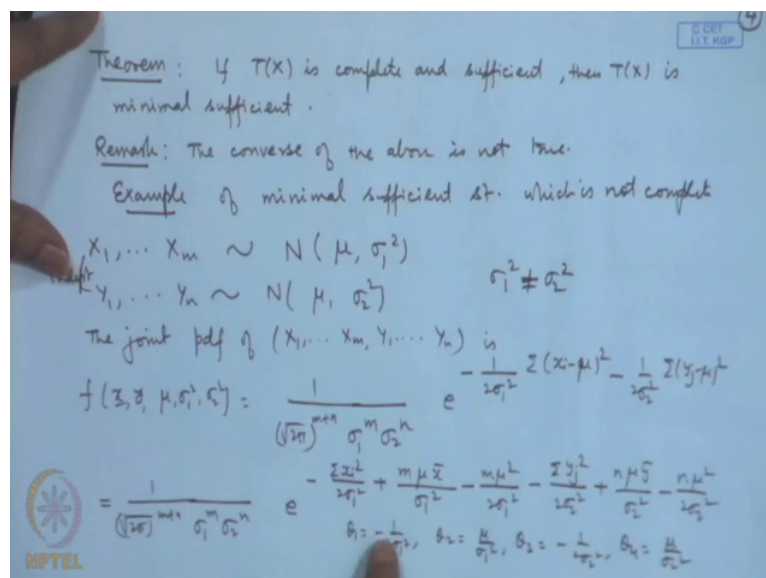 4
© CET
I.I.T. KGP
Theorem : If T(X) is complete and sufficient, then T(X) is
minimal sufficient.
Remark : The converse of the above is not true.
Example of minimal sufficient st. which is not complete
X₁, ... Xₘ ~ N(μ, σ₁²)
indept
Y₁, ... Yₙ ~ N(μ, σ₂²) σ₁² ≠ σ₂²
The joint pdf of (X₁, ... Xₘ, Y₁, ... Yₙ) is
f(x, y, μ, σ₁², σ₂²) = 1/((√2π)^{m+n} σ₁^m σ₂^n) e^{-1/(2σ₁²) Σ(xᵢ-μ)² - 1/(2σ₂²) Σ(yⱼ-μ)²}
= 1/((√2π)^{m+n} σ₁^m σ₂^n) e^{-Σxᵢ²/(2σ₁²) + mμx̄/σ₁² - mμ²/(2σ₁²) - Σyⱼ²/(2σ₂²) + nμȳ/σ₂² - nμ²/(2σ₂²)}
θ₁ = -1/(2σ₁²), θ₂ = μ/σ₁², θ₃ = -1/(2σ₂²), θ₄ = μ/σ₂²
NPTEL